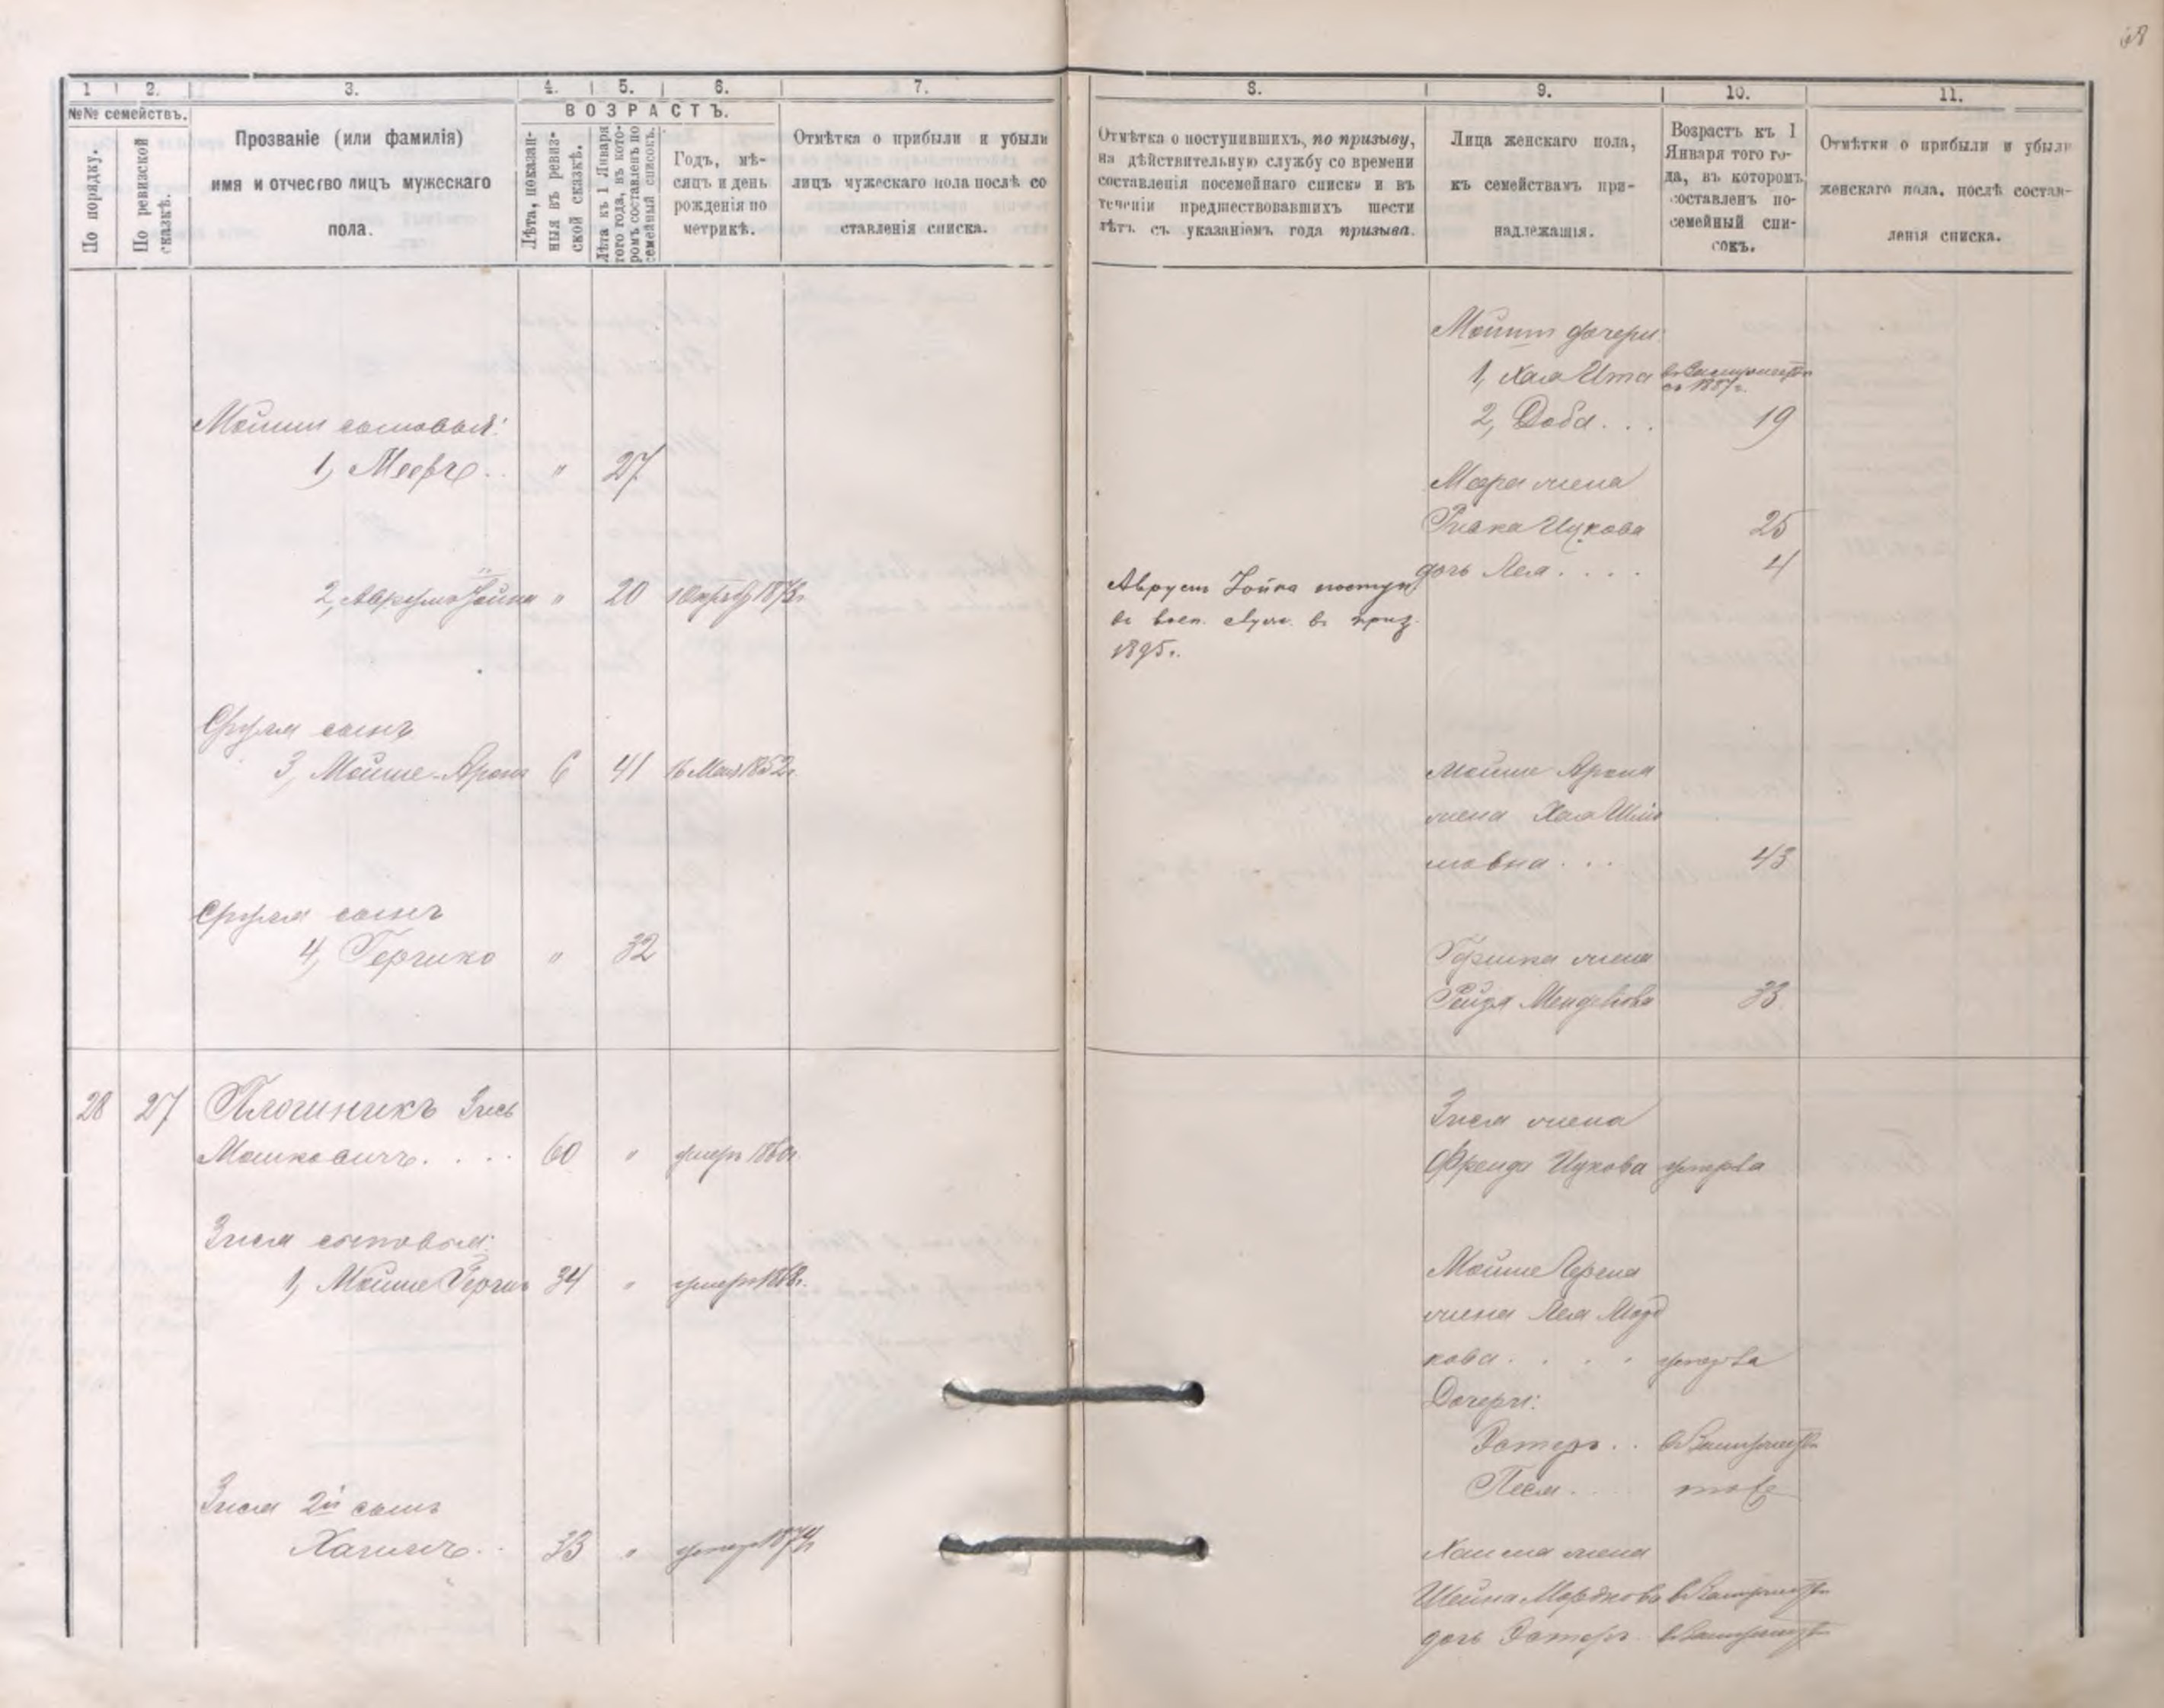 68
1
2.
3.
4.
5.
6.
7.
№№ семействъ.
По порядку.
По ревизской сказкѣ.
Прозваніе (или фамилія)
имя и отчество лицъ мужескаго
пола.
ВОЗРАСТЪ.
Лѣта, показан-
ныя въ ревиз-
ской сказкѣ.
Лѣта къ 1 Января
того года, въ кото-
ромъ составленъ по
семейный списокъ.
Годъ, мѣ-
сяцъ и день
рожденія по
метрикѣ.
Отмѣтка о прибыли и убыли
лицъ мужескаго пола послѣ со
ставленія списка.
Мойши сыновья:
1, Мееръ . . " 27
2, Аврумъ Іойна " 20
Сруля сынъ
3, Мойше-Аронъ 6 41 16 Мая 1852 г.
Сруля сынъ
4, Гершко " 32
28 27 Плошникъ Зись
Мошковичъ . . . . 60 " умеръ 1860 г.
Зися сыновья:
1, Мойше Гершъ 34 " умеръ 1868 г.
Зися 2й сынъ
Хаимъ . . 33 " умеръ 1874 г.
8.
9.
10.
11.
Отмѣтка о поступившихъ, по призыву,
на дѣйствительную службу со времени
составленія посемейнаго списка и въ
теченіи предшествовавшихъ шести
лѣтъ съ указаніемъ года призыва.
Лица женскаго пола,
къ семействамъ при-
надлежащія.
Возрастъ къ 1
Января того го-
да, въ которомъ
составленъ по-
семейный спи-
сокъ.
Отмѣтки о прибыли и убыли
женскаго пола, послѣ состав-
ленія списка.
Мойши дочери:
1, Хая Ита въ замужествѣ
съ 1887 г.
2, Доба . . . 19
Меера жена
Ривка Ицкова 25
дочь Лея . . . . 4
Аврумъ Іойна поступ.
въ воен. служ. въ приз.
1895 г.
Мойше Арона
жена Хая Шлио
мовна . . . 43
Гершка жена
Рейзя Менделева 33
Зися жена
Фрейда Ицкова умерла
Мойше Герша
жена Лея Морд
кова . . . . умерла
Дочери:
Эстеръ . . въ замужествѣ
Песя . . . . тоже
Хаима жена
Шейна Мордкова въ замужествѣ
дочь Эстеръ въ замужествѣ